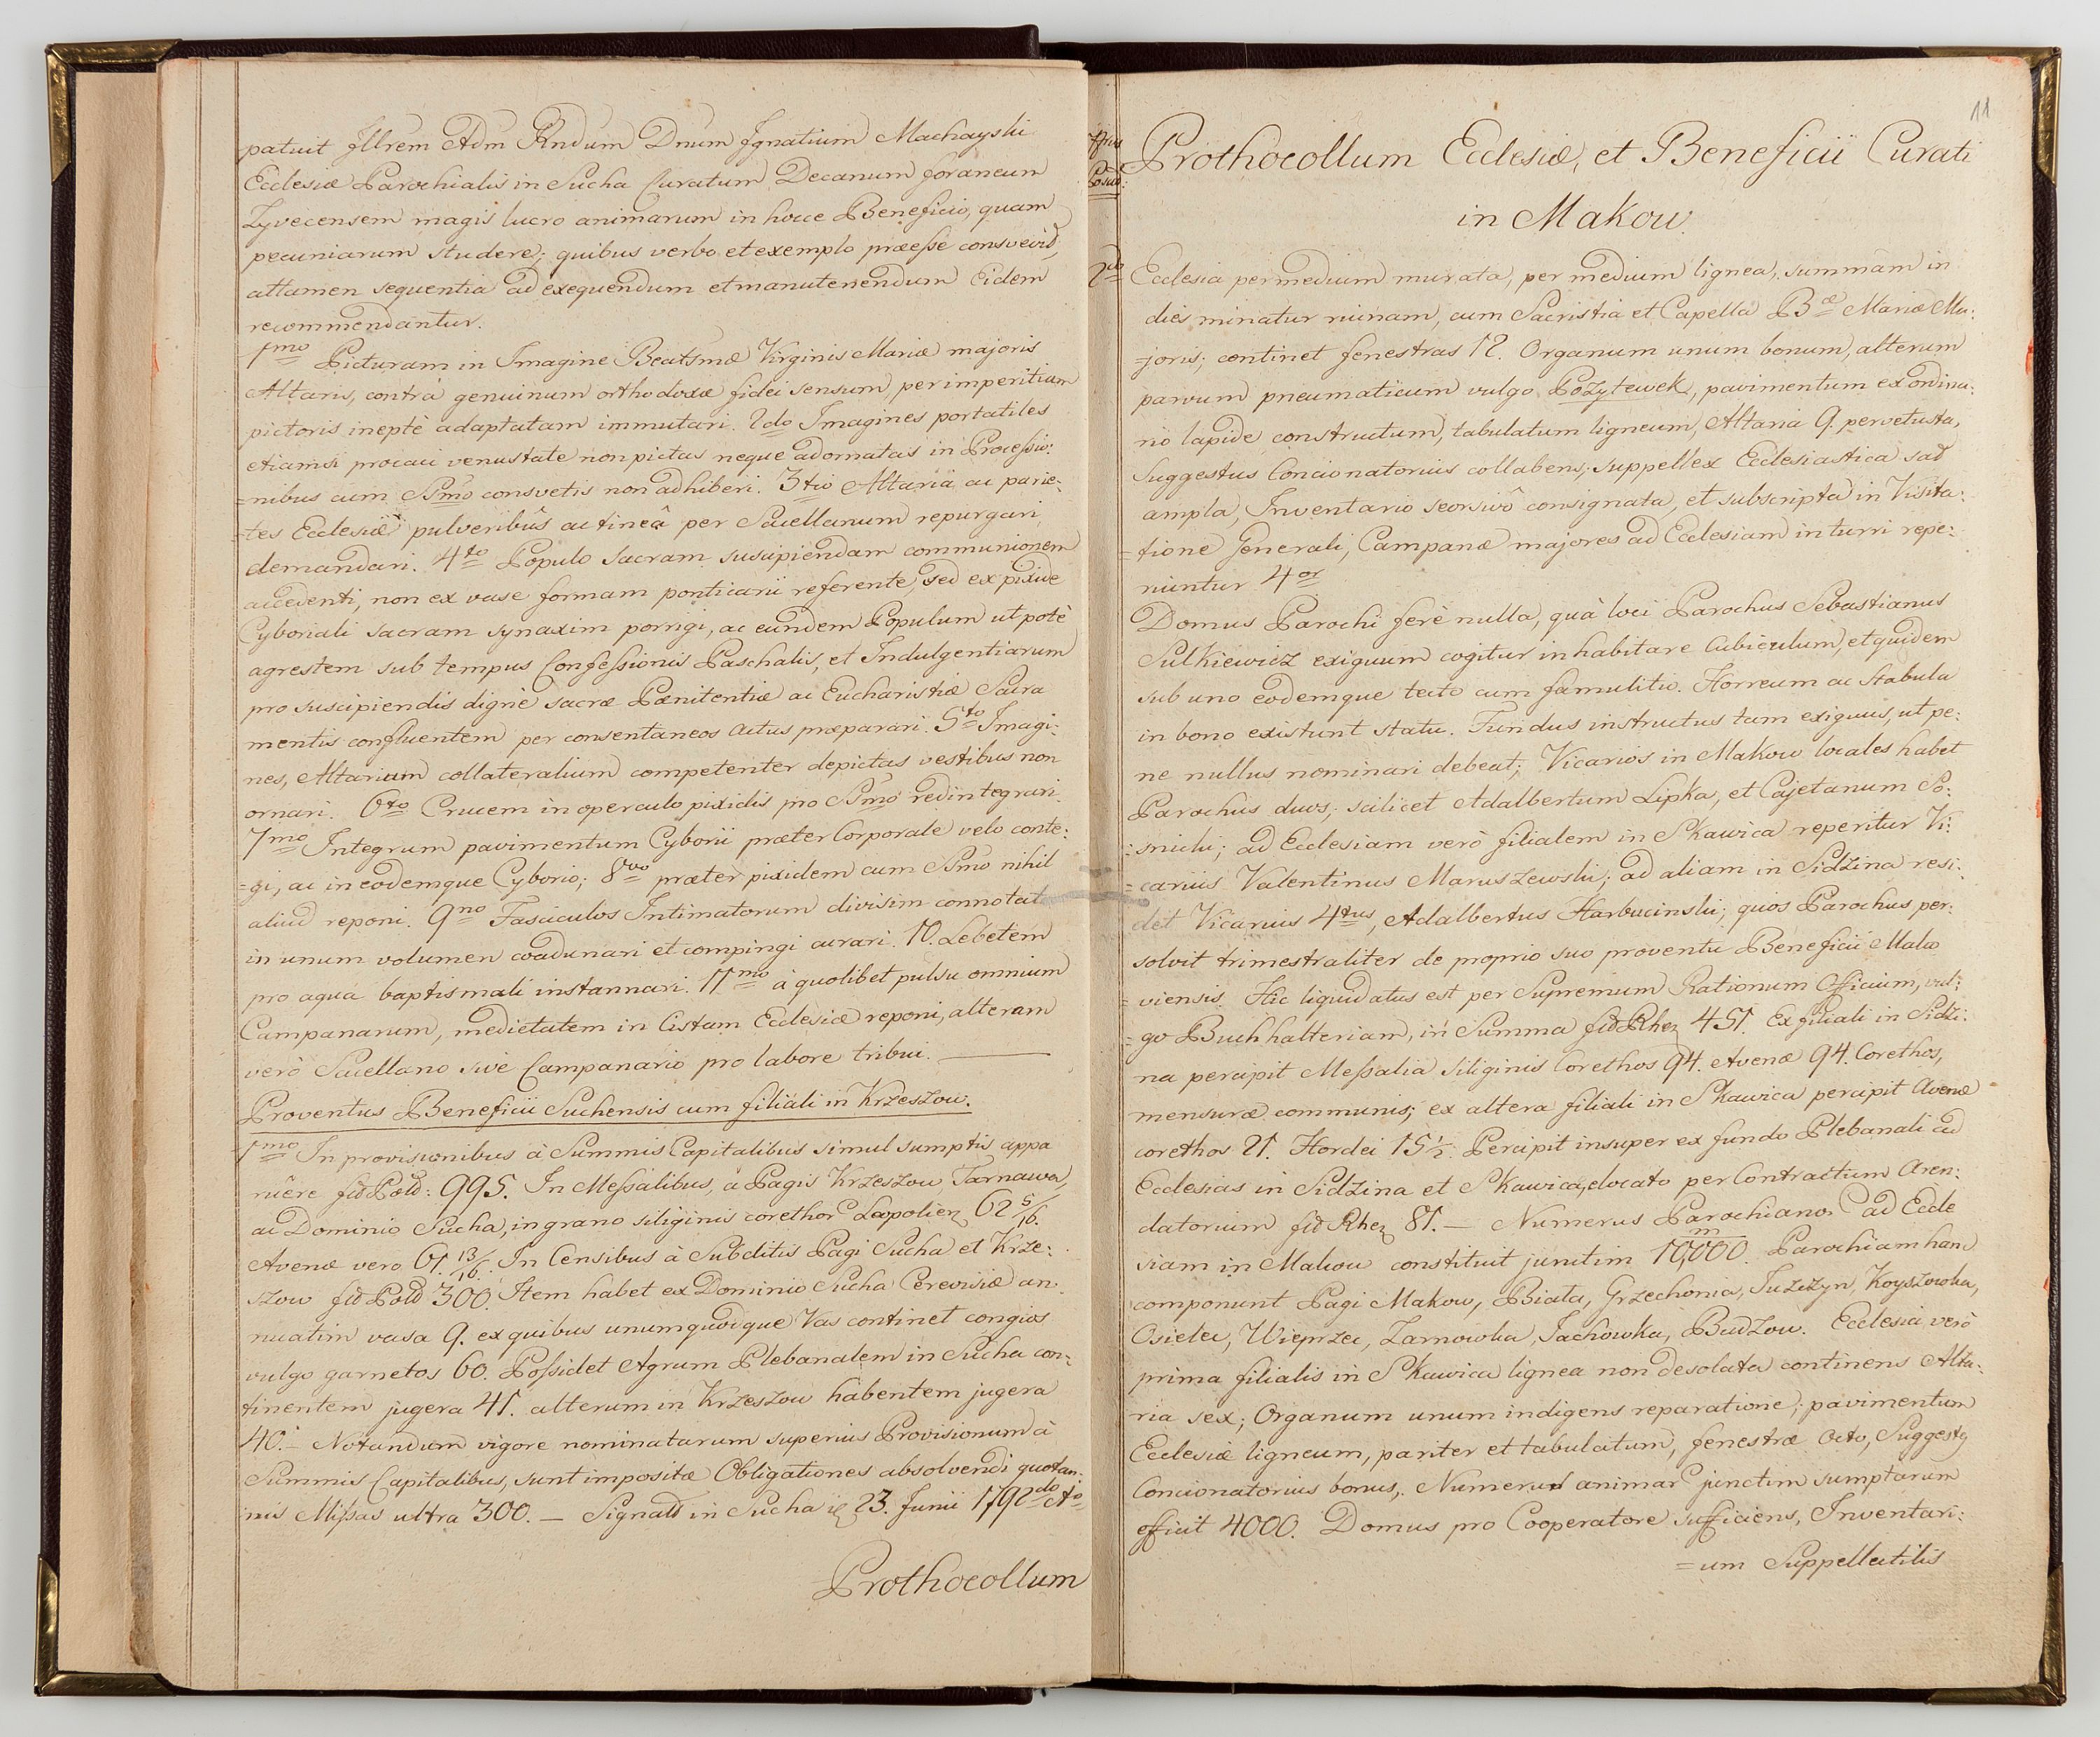 patuit Jllrem Adm Rndum Dnum Jgnatium Machayski
Ecclesiæ Parochialis in Sucha Curatum, Decanum foraneum
Zyvecensem magis lucro animarum in hocce Beneficio, quam
pecuniarum studere; quibus verbo et exemplo præesse consvevit,
attamen sequentia ad exequendum et manutenendum Eidem
recommendantur.
1mo Picturam in Imagine Beatsmæ Virginis Mariæ majoris
Altaris, contrà genuinum orthodoxæ fidei sensum, per imperitiam
pictoris ineptè adaptatam immutari. 2do Imagines portatiles
etiamsi procaci venustate non pictas neque adornatas in Processio:
=nibus cum Ssmo consvetis non adhiberi. 3tio Altaria ac parie:
=tes Ecclesiæ pulveribûs ac tineâ per Sacellanum repurgari
demandari. 4to Populo sacram suscipiendam communionem
accedenti, non ex vase formam ponticarii referente, sed ex pixide
Cyboriali sacram synaxim porrigi, ac eundem Populum utpotè
agrestem sub tempus Confessionis Paschalis, et Indulgentiarum
pro suscipiendis dignè sacræ Pœnitentiæ ac Eucharistiæ Sacra
mentis confluentem per consentaneos actus præparari. 5to Imagi:
nes, Altarium collateralium competenter depictas vestibus non
ornari. 6to Crucem in operculo pixidis pro Ssmo redintegrari.
7mo Integrum pavimentum Cyborii præter Corporale velo conte:
=gi, ac in eodemque Cyborio; 8vo præter pixidem cum Ssmo nihil
aliud reponi. 9no Fasciculos Intimatorum divisim connotat
in unum volumen coadunari et compingi curari. 10. Lebetem
pro aqua baptismali instannari. 11mo à quolibet pulsu omnium
Campanarum, medietatem in Cistam Ecclesiæ reponi, alteram
verò Sacellano sivè Campanario pro labore tribui. —
Proventus Beneficii Suchensis cum filiali in Krzeszow.
1mo In provisionibus à Summis Capitalibus simul sumptis appa
ruêre fl Pold: 995. In Messalibus, à Pagis Krzeszow, Tarnawa,
ac Dominio Sucha, in grano siliginis corethos 62 5/16.
Avenæ vero 61. 13/16. In Censibus à Subditis Pagi Sucha et Krze:
szow fl Pold 300. Item habet ex Dominio Sucha Cerevisiæ an:
nuatim vasa 9. ex quibus unumquodque Vas continet congios
vulgo garnetos 60. Possidet Agrum Plebanalem in Sucha con:
tinentem jugera 41. alterum in Krzeszow habentem jugera
40.– Notandum vigore nominatarum superius Provisionum à
Summis Capitalibus, sunt impositæ Obligationes absolvendi quotan:
nis Missas ultra 300. — Signatt in Sucha 23. Junii 1792do Ao
Prothocollum
11
Prothocollum Ecclesiæ, et Beneficii Curati
in Makow.
2do
Ecclesia per medium murata, per medium lignea, summam in
dies minatur ruinam, cum Sacristia et Capella Bæ Mariæ Ma:
=joris; continet fenestras 12. Organum unum bonum, alterum
parvum pneumaticum vulgo Pozytewek, pavimentum ex ordina:
rio lapide constructum, tabulatum ligneum, Altaria 9. pervetusta,
Suggestus Concionatorius collabens; suppellex Ecclesiastica sat
ampla, Inventario seorsivô consignata, et subscripta in Visita:
=tione Generali, Campanæ majores ad Ecclesiam in turri repe:
riuntur 4or
Domus Parochi ferè nulla, quà loci Parochus Sebastianus
Sulkiewicz exiguum cogitur inhabitare Cubiculum, et quidem
sub uno eodemque tecto cum famulitio. Horreum ac Stabula
in bono existunt statu. Fundus instructus tam exiguus, ut pe:
ne nullus nominari debeat; Vicarios in Makow locales habet
Parochus duos; scilicet Adalbertum Lipka, et Cajetanum So:
=snicki; ad Ecclesiam verò filialem in Skawica reperitur Vi:
=carius Valentinus Maruszewski; ad aliam in Sidzina resi:
det Vicarius 4tus, Adalbertus Harbucinski; quos Parochus per:
solvit trimestraliter de proprio suo proventu Beneficii Mako
=viensis. Hic liquidatus est per Supremum Rationum Officium, vul:
=go Buchhalteriam, in Summa fl Rhen 451. Ex filiali in Sidzi:
na percipit Messalia siliginis Corethos 94. Avenæ 94. Corethos,
mensuræ communis; ex altera filiali in Skawica percipit Avenæ
corethos 21. Hordei 15 1/2. Percipit insuper ex fundo Plebanali ad
Ecclesias in Sidzina et Skawica, elocato per Contractum Aren:
datorium fl Rhen 81. — Numerus Parochianor ad Eccle
siam in Makow constituit junctim 10,000. Parochiam hanc
componunt Pagi Makow, Biała, Grzechonia, Juzczyn, Koyszowka,
Osielec, Wieprzec, Zarnowka, Jachowka, Budzow. Ecclesia verò
prima filialis in Skawica lignea non desolata continens Alta:
ria sex; Organum unum indigens reparatione; pavimentum
Ecclesiæ ligneum, pariter et tabulatum, fenestræ Octo, Suggestg
Concionatorius bonus,. Numerus animar junctim sumptarum
efficit 4000. Domus pro Cooperatore sufficiens, Inventari:
=um Suppellectilis